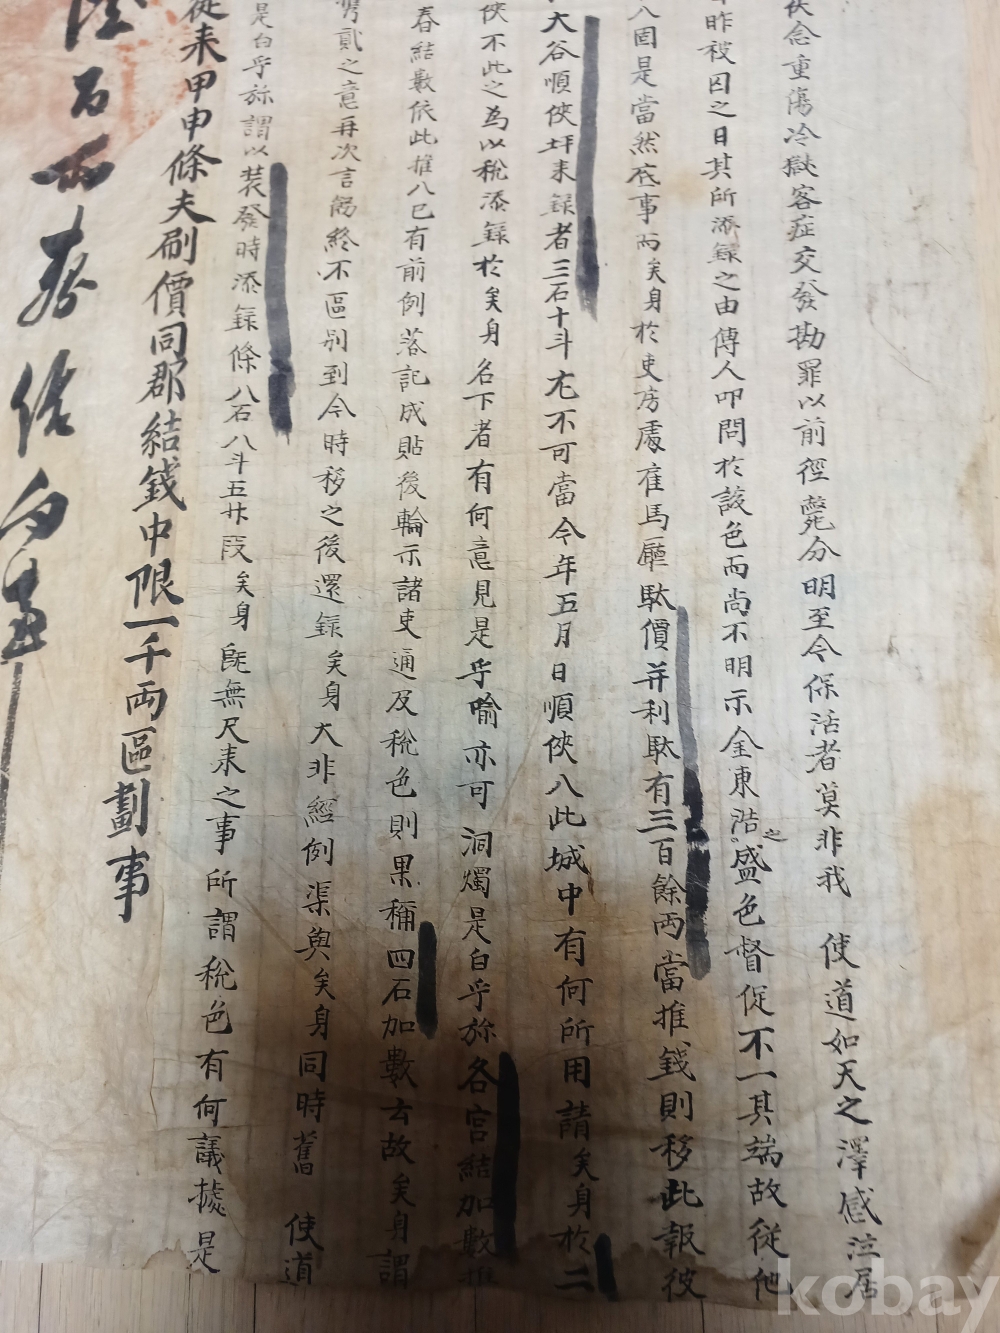 伏念重傷冷獄客症交發勘罪以前徑斃分明至今保活者莫非我 使道如天之澤感泣居
昨被囚之日其所添錄之由傳人叩問於該色而尙不明示金東浩之盛色督促不一其端故從他
八固是當然底事而矣身於吏房處隹馬廐馱價幷利馱有三百餘兩當推錢則移此報彼
大谷順俠 耒錄者三石十斗尤不可當今年五月日順俠八此城中有何所用請矣身於二
俠不此之為以稅添錄於矣身名下者有何意見是乎喩亦可洞燭是白乎旀各宮結加數推
春結數依此推八已有前例落記成貼後輪示諸吏通及稅色則果稱四石加數云故矣身謂
貳之意再次言飭終不區別到今時移之後還錄矣身大非經例渠與矣身同時舊 使道
是白乎旀謂以裝發時添錄條八石八斗五升段矣身旣無尺耒之事所謂稅色有何議據是
從来甲申條夫刷價同郡結錢中限一千両區劃事
kobay